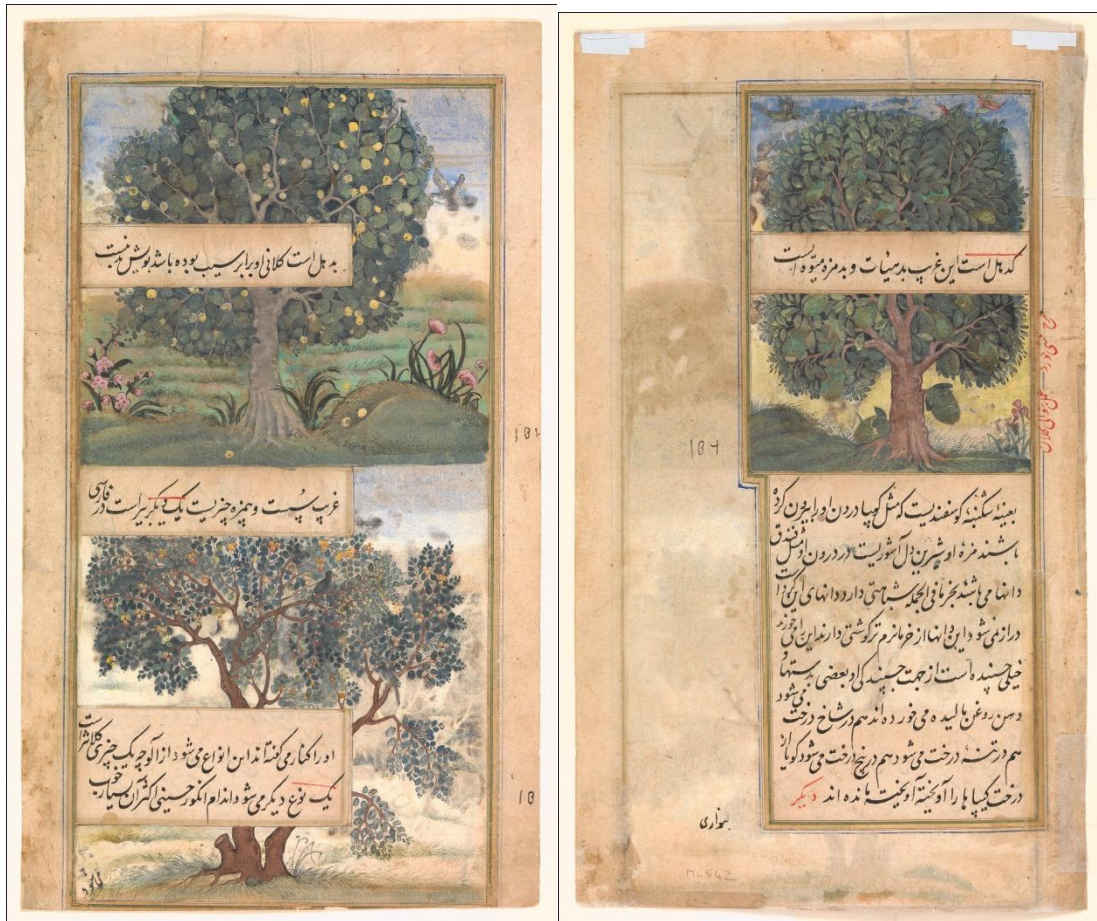 بدهل است کلانی او برابر سیب بوده باشد بویش بد نیست
غریب پست و بیمزه چیزیست یک دیکر بیر است در فارسی
او را کنار می گفته اند این انواع می شود از آلوچه یک چیزی کلانتر است
یک نوع دیکر می شود اندام انکور حسینی اکثر آن بسیار خوب
کدهل است این غریب بد هیات و بد مزه میوه ایست
بعینه شکنبه گوسفندیست که مثل کیپا درون او را بیرون کرده
باشند مزه او شیرین دل آشوریست در درون او مثل فندق
دانها می باشد بخرما فی الجمله شباهتی دارد دانهای این کرد است
دراز نمی شود این دانها از خرما نرم تر گوشتی دارند این را می خورند
خیلی چسپنده است از جهت چسپندکی او بعضی دستها و
دهن روغن مالیده می خورده اند هم در شاخ درخت می شود
هم در تنه درخت می شود هم در بیخ درخت می شود گویا از
درخت کیپاها را آویخته آویخته مانده اند دیکر
184
ML 542